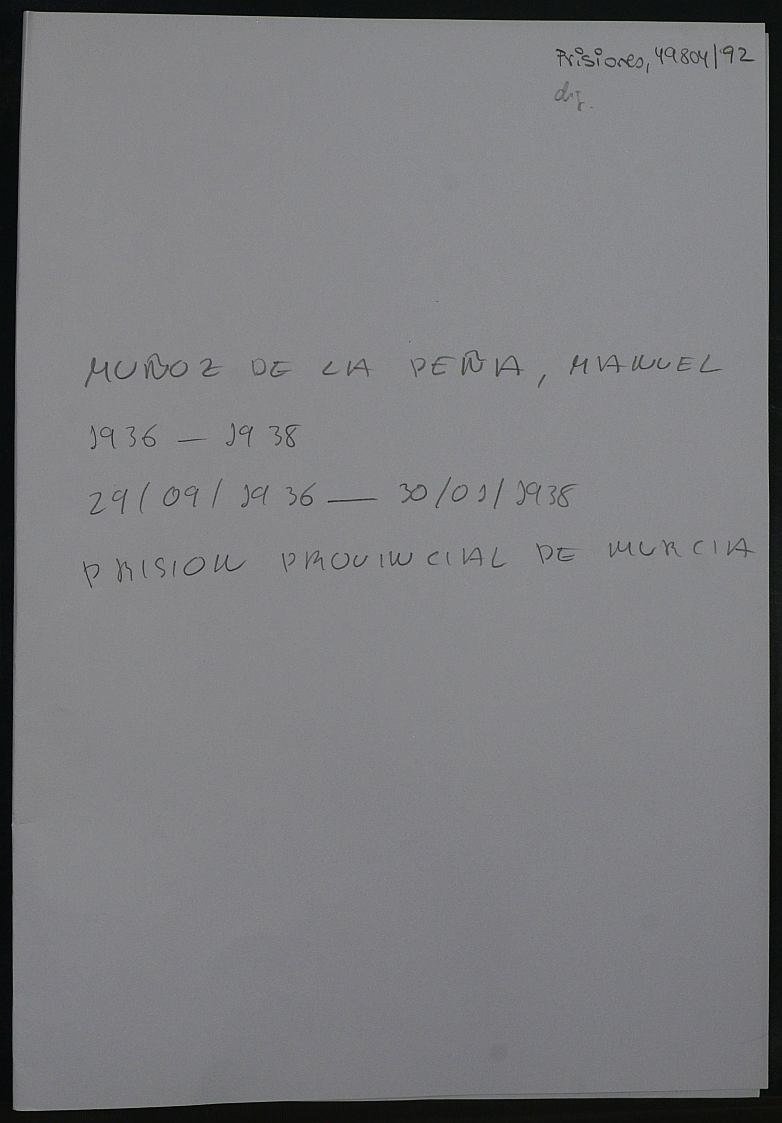 Prisiones, 49804/92
dig.
MUÑOZ DE LA PEÑA, MANUEL
1936 — 1938
29/09/1936 — 30/01/1938
PRISION PROVINCIAL DE MURCIA